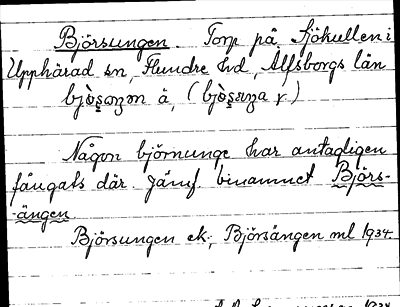 Björsungen. Torp på Sjökullen i
Upphärad sn, Flundre hd, Älfsborgs län
Någon björnunge har antagligen
fångats där. Jämf. binamnet Björs-
-ängen
Björsungen ek, Björsängen ml 1934